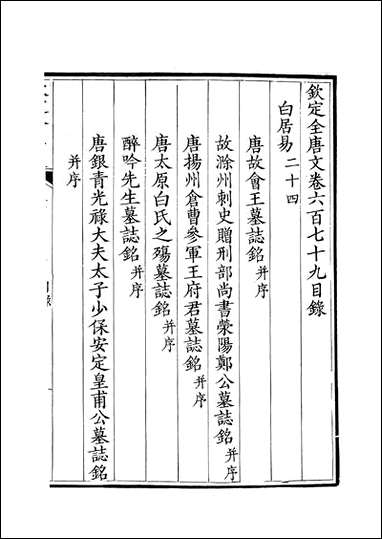 欽定全唐文卷六百七十九目錄
白居易二十四
唐故會王墓誌銘并序
故滁州刺史贈刑部尚書滎陽鄭公墓誌銘并序
唐揚州倉曹參軍王府君墓誌銘并序
唐太原白氏之殤墓誌銘并序
醉吟先生墓誌銘并序
唐銀青光祿大夫太子少保安定皇甫公墓誌銘
并序